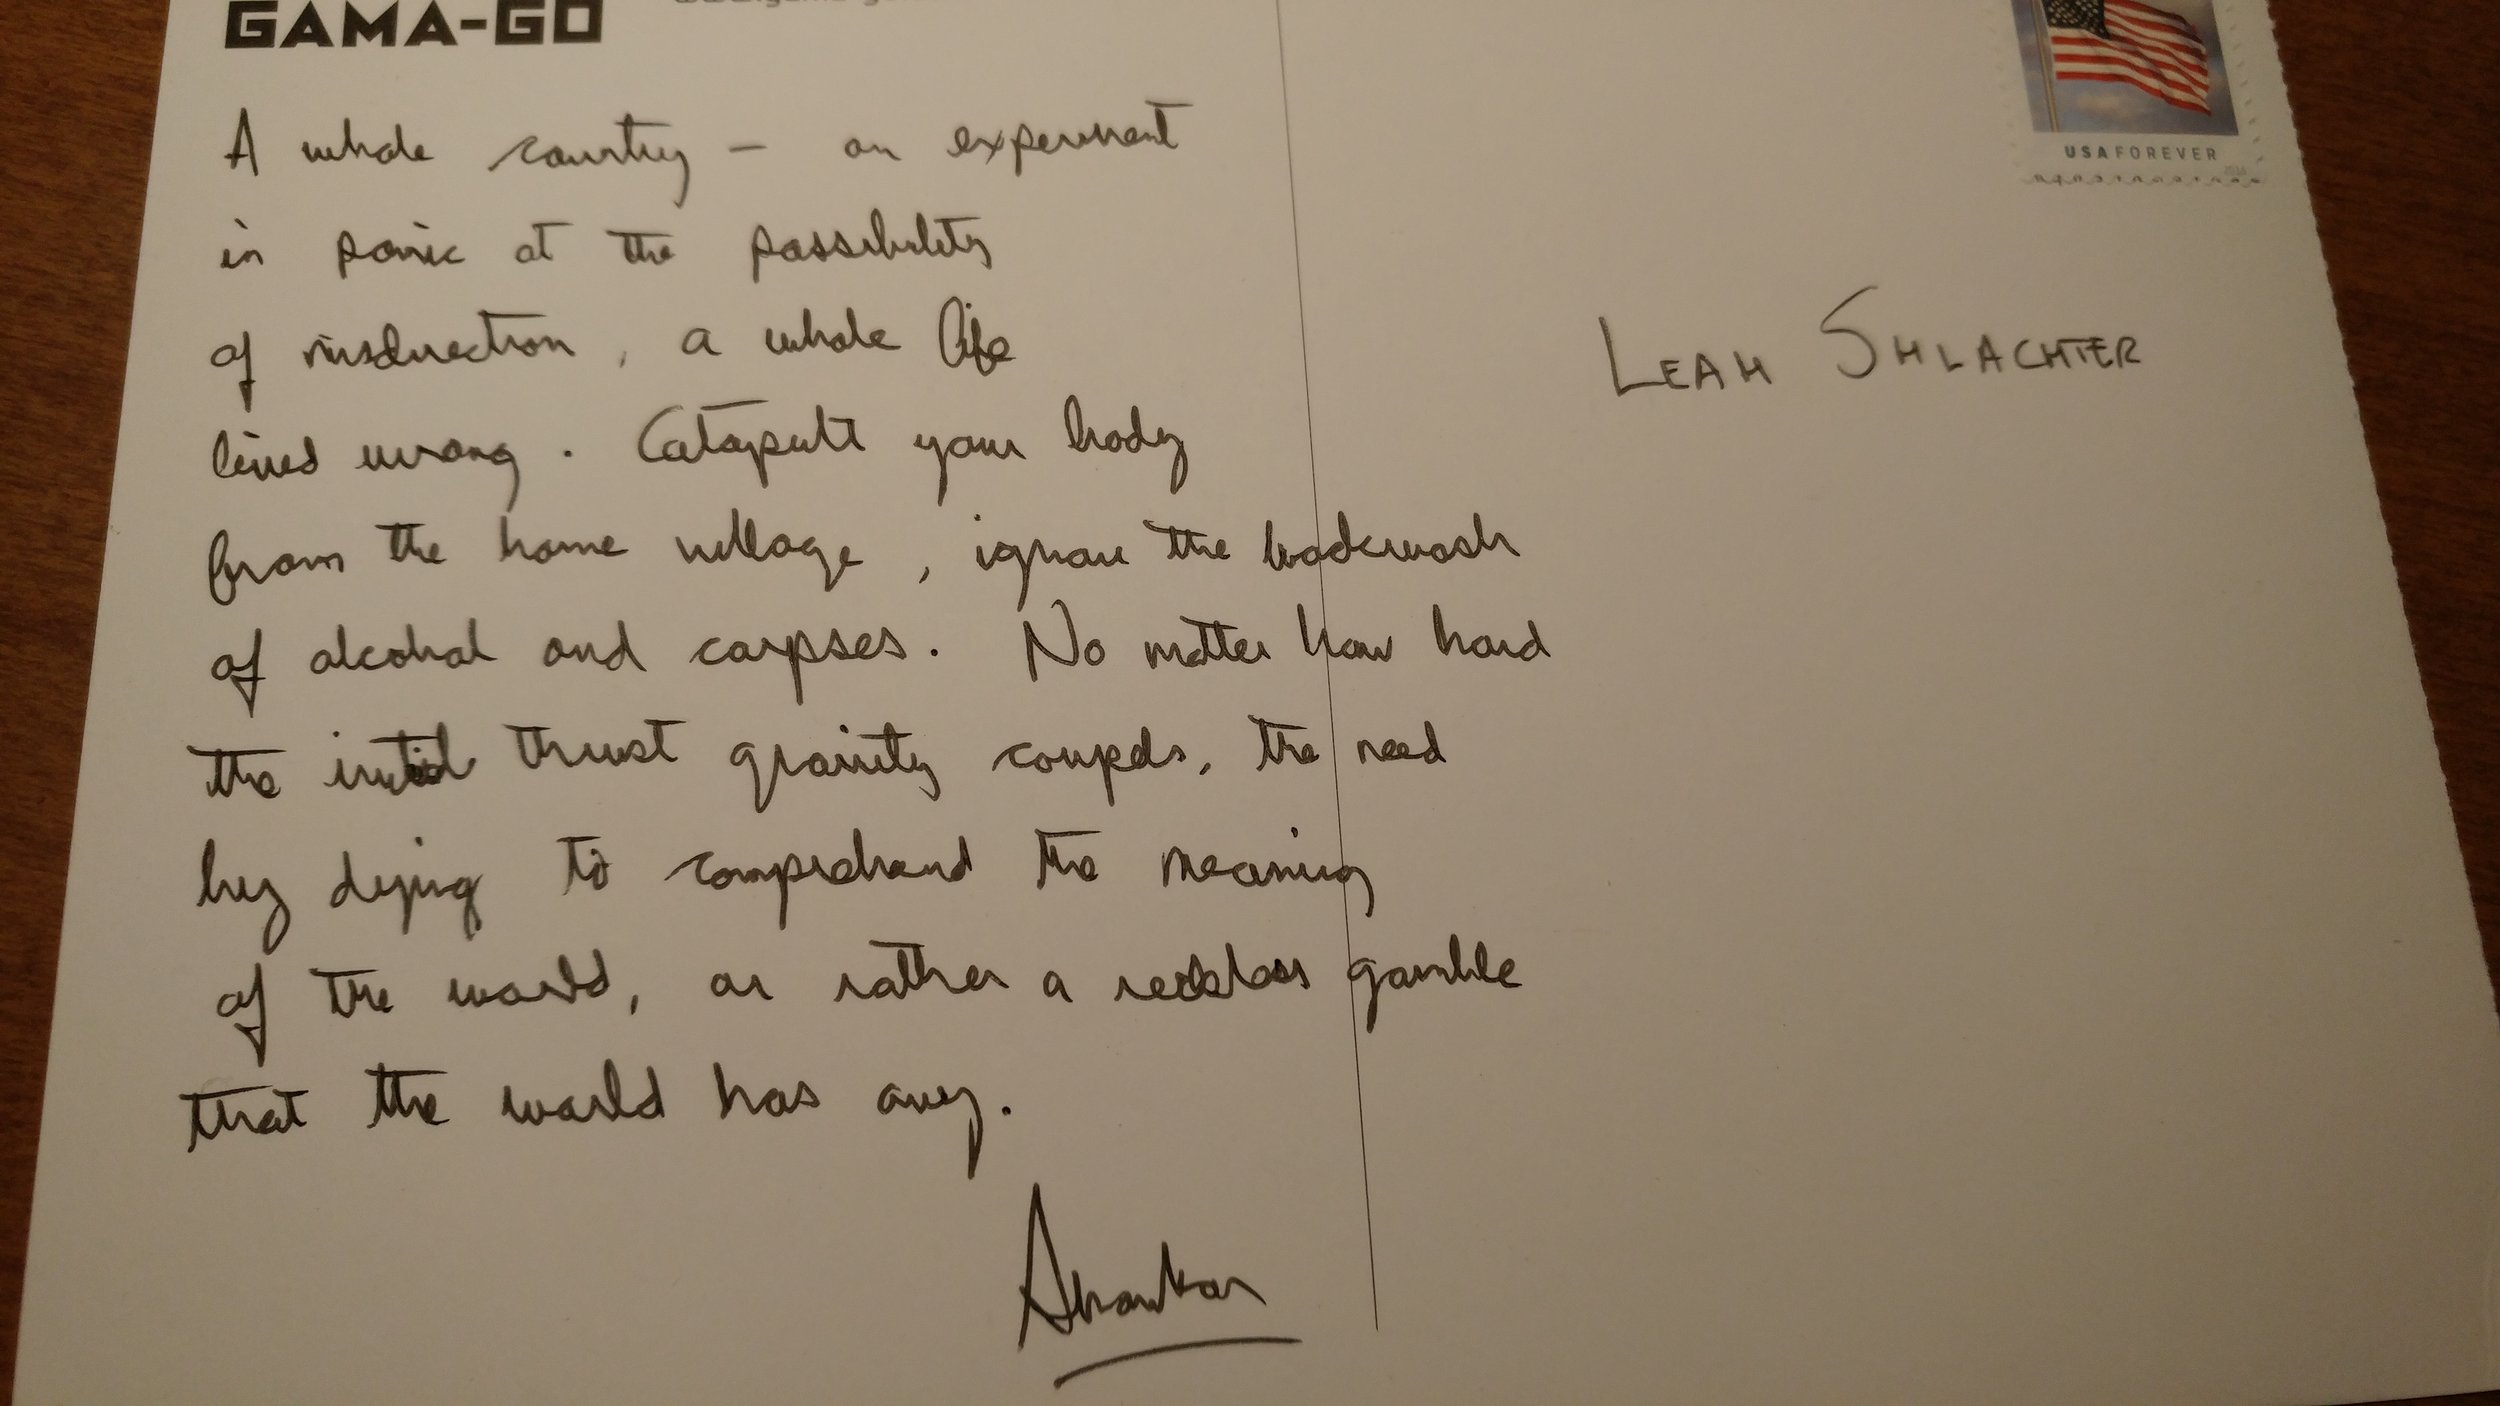 GAMA-GO
USA FOREVER
A whole country — an experiment
in panic at the possibility
of misdirection, a whole life
lived wrong. Catapult your body
from the home village, ignore the backwash
of alcohol and corpses. No matter how hard
the initial thrust gravity compels, the need
by dying to comprehend the meaning
of the world, or rather a reckless gamble
that the world has any.
LEAH SHLACHTER